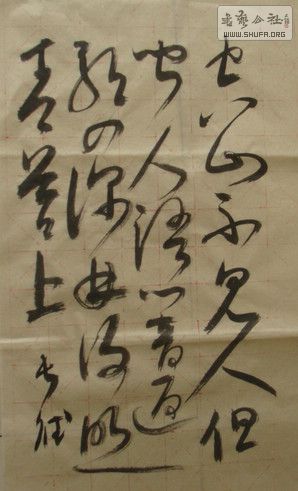 書法公社
WWW.SHUFA.ORG
空山不見人但
聞人語響返
景入深林復照
青苔上